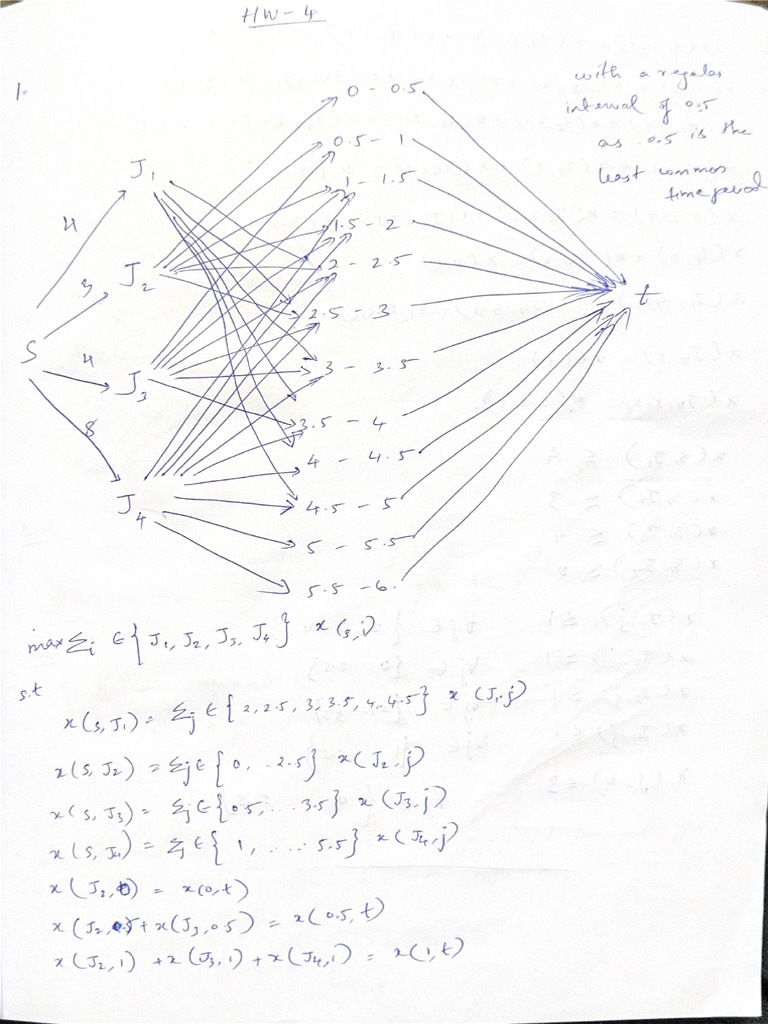 HW-4
1.
with a regular
interval of 0.5
as 0.5 is the
least common
time period
0 - 0.5
0.5 - 1
1 - 1.5
1.5 - 2
2 - 2.5
2.5 - 3
3 - 3.5
3.5 - 4
4 - 4.5
4.5 - 5
5 - 5.5
5.5 - 6
J₁
J₂
J₃
J₄
S
4
3
4
8
t
max Σi ∈ { J₁, J₂, J₃, J₄ } x (s,i)
s.t
x (s, J₁) = Σj ∈ { 2, 2.5, 3, 3.5, 4, 4.5 } x (J₁, j)
x (s, J₂) = Σj ∈ { 0, .. 2.5 } x (J₂, j)
x (s, J₃) = Σj ∈ { 0.5, ... 3.5 } x (J₃, j)
x (s, J₄) = Σj ∈ { 1, ..... 5.5 } x (J₄, j)
x (J₂, 0) = x (0, t)
x (J₂, 0.5) + x (J₃, 0.5) = x (0.5, t)
x (J₂, 1) + x (J₃, 1) + x (J₄, 1) = x (1, t)